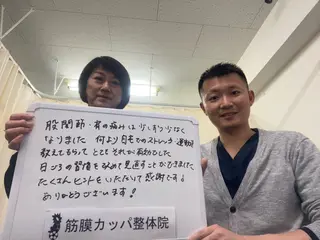 股関節・首の痛みは少しずつ少なく
なりました 何より自宅でのストレッチ・運動を
教えてもらって とても それが有効でした
日ごろの習慣を改めて見直すことができました
たくさんヒントをいただいて感謝です!
ありがとうございます!
筋膜カッパ整体院